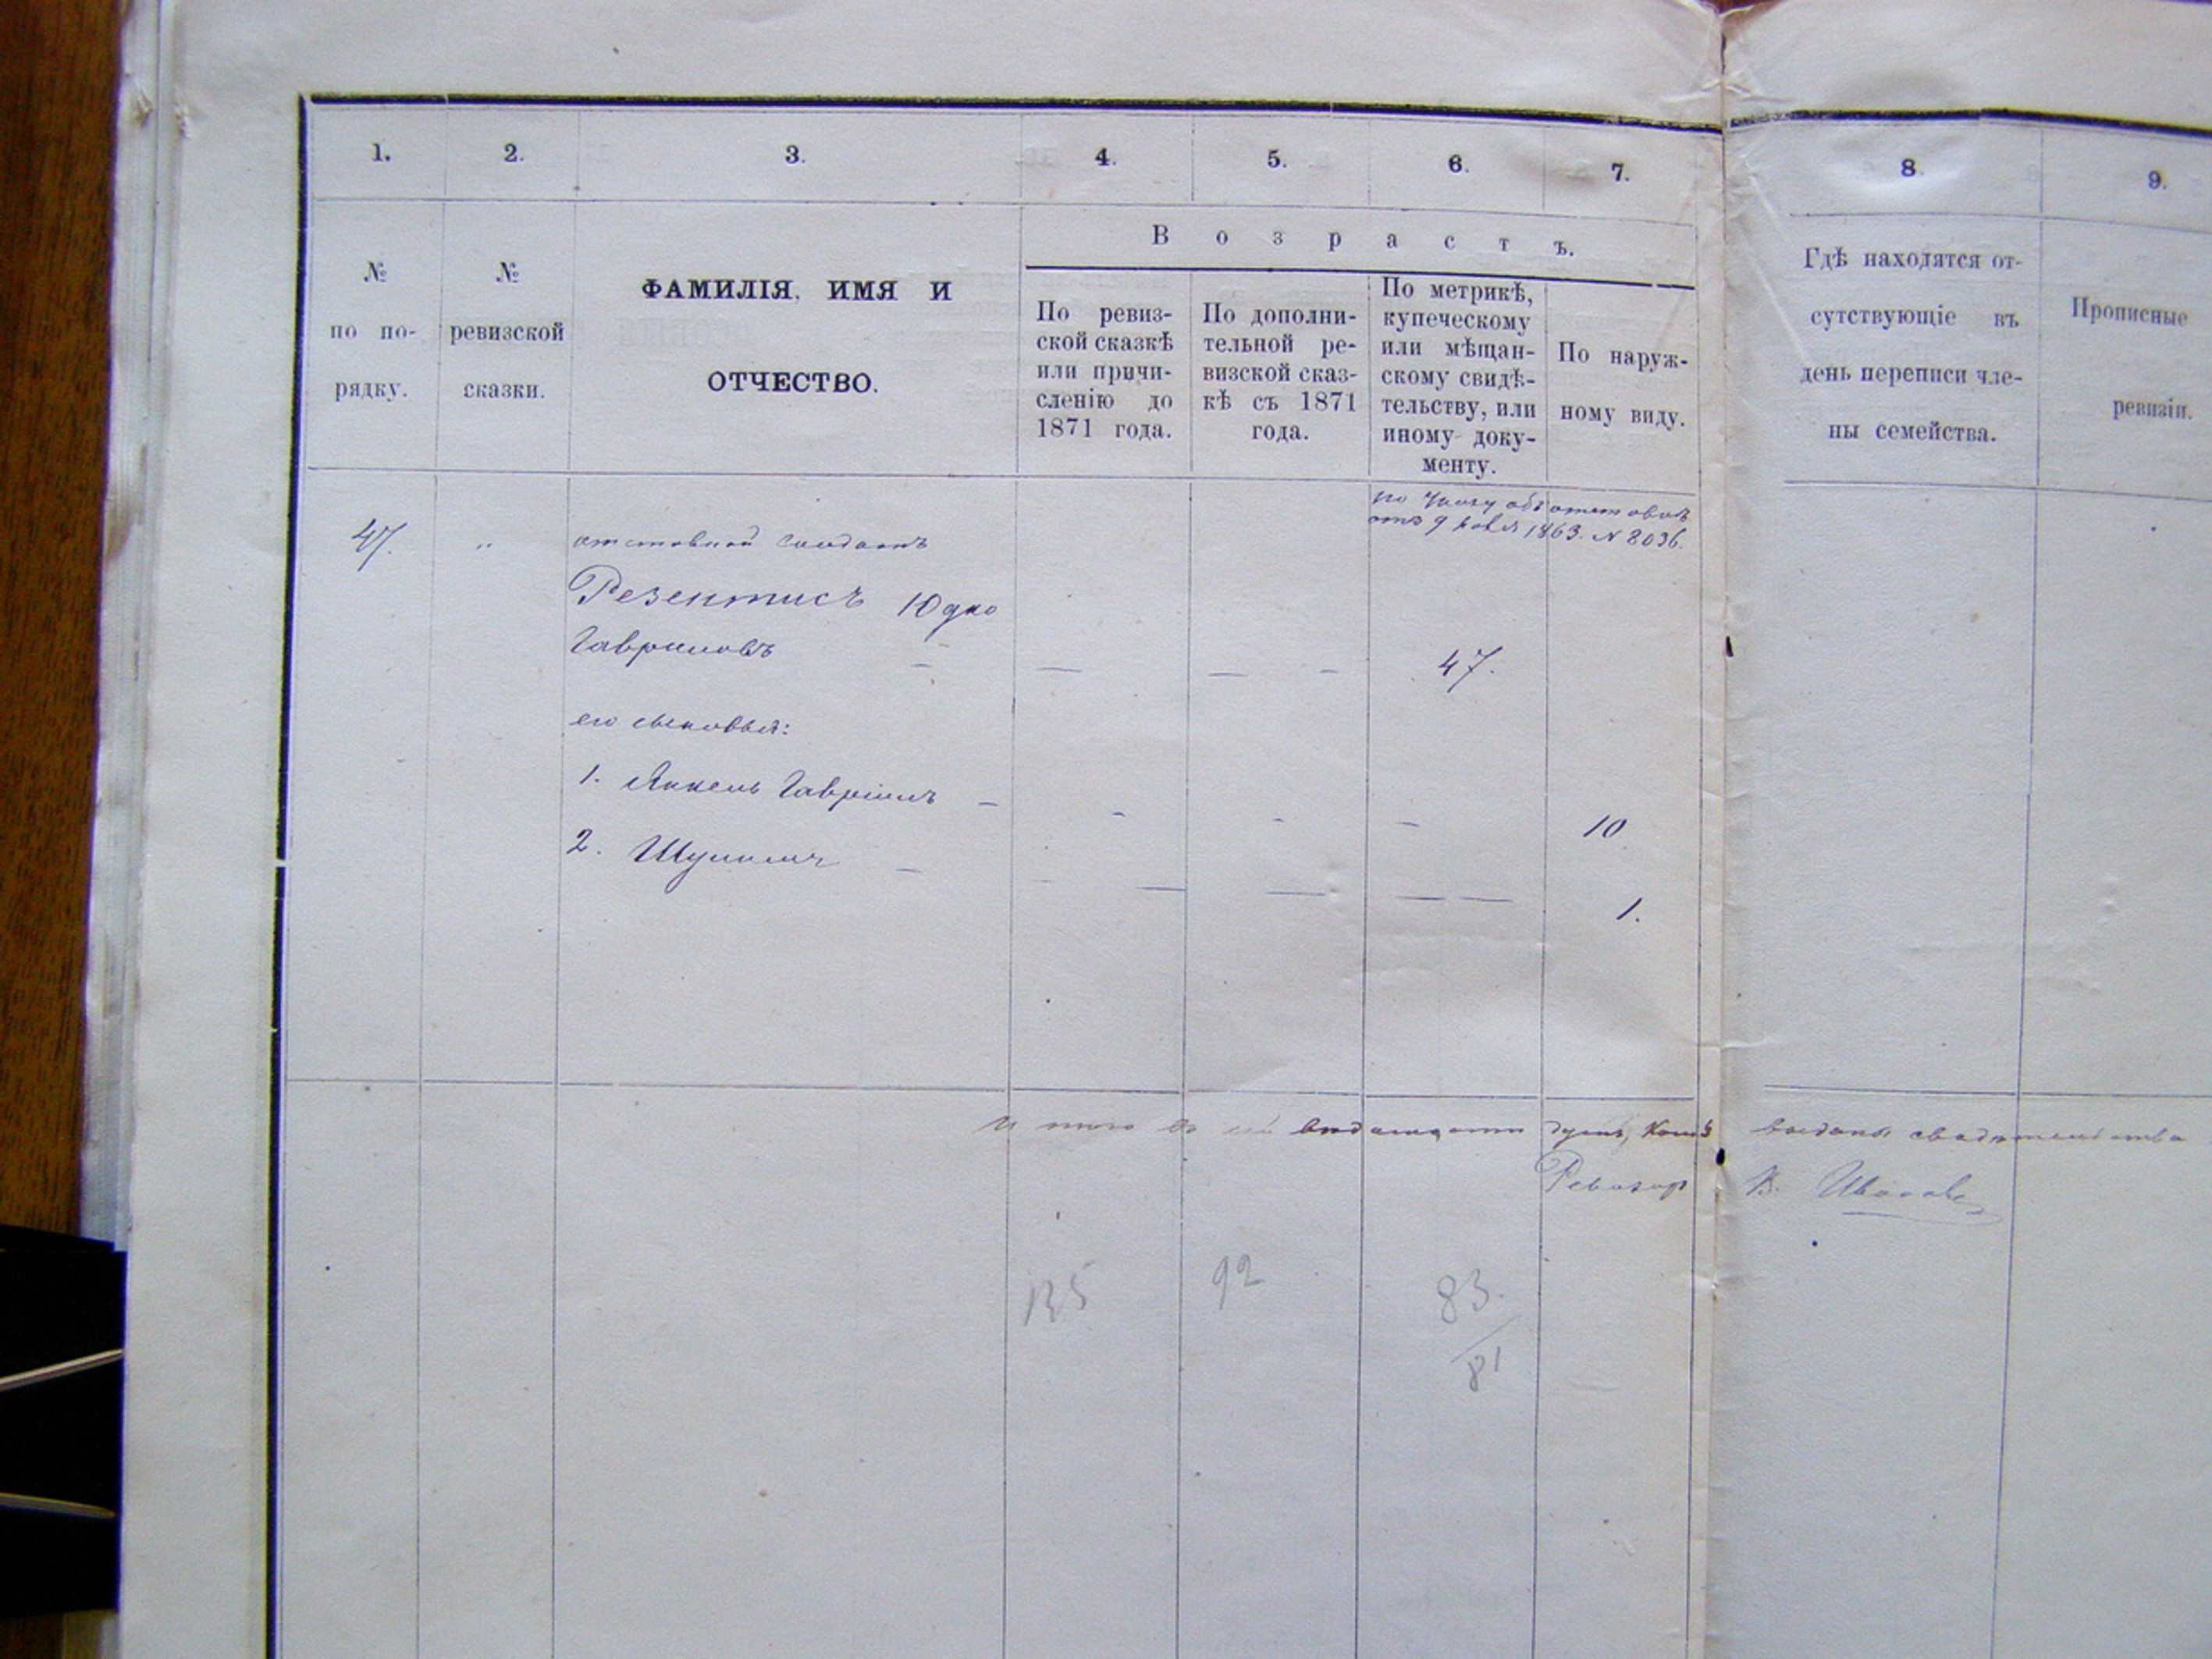 1. 2. 3. 4. 5. 6. 7. 8. 9.
№
по по-
рядку.
№
ревизской
сказки.
ФАМИЛІЯ, ИМЯ И
ОТЧЕСТВО.
Возрастъ.
По ревиз-
ской сказкѣ
или причи-
сленію до
1871 года.
По дополни-
тельной ре-
визской сказ-
кѣ съ 1871
года.
По метрикѣ,
купеческому
или мѣщан-
скому свидѣ-
тельству, или
иному доку-
менту.
По наруж-
ному виду.
Гдѣ находятся от-
сутствующіе въ
день переписи чле-
ны семейства.
Прописные
ревизіи.
по указу объ отставкѣ
отъ 9 1863. N 8036.
47. " отставной солдатъ
Резентисъ Юдко
Гавриловъ — — — — 47.
его сыновья:
1. Янкель Гавріилъ — - - — 10
2. Шулимъ — — — — — 1.
И того душъ, коимъ выданы свидѣтельства
Ревизор К. Иванов
135 92 83.
81